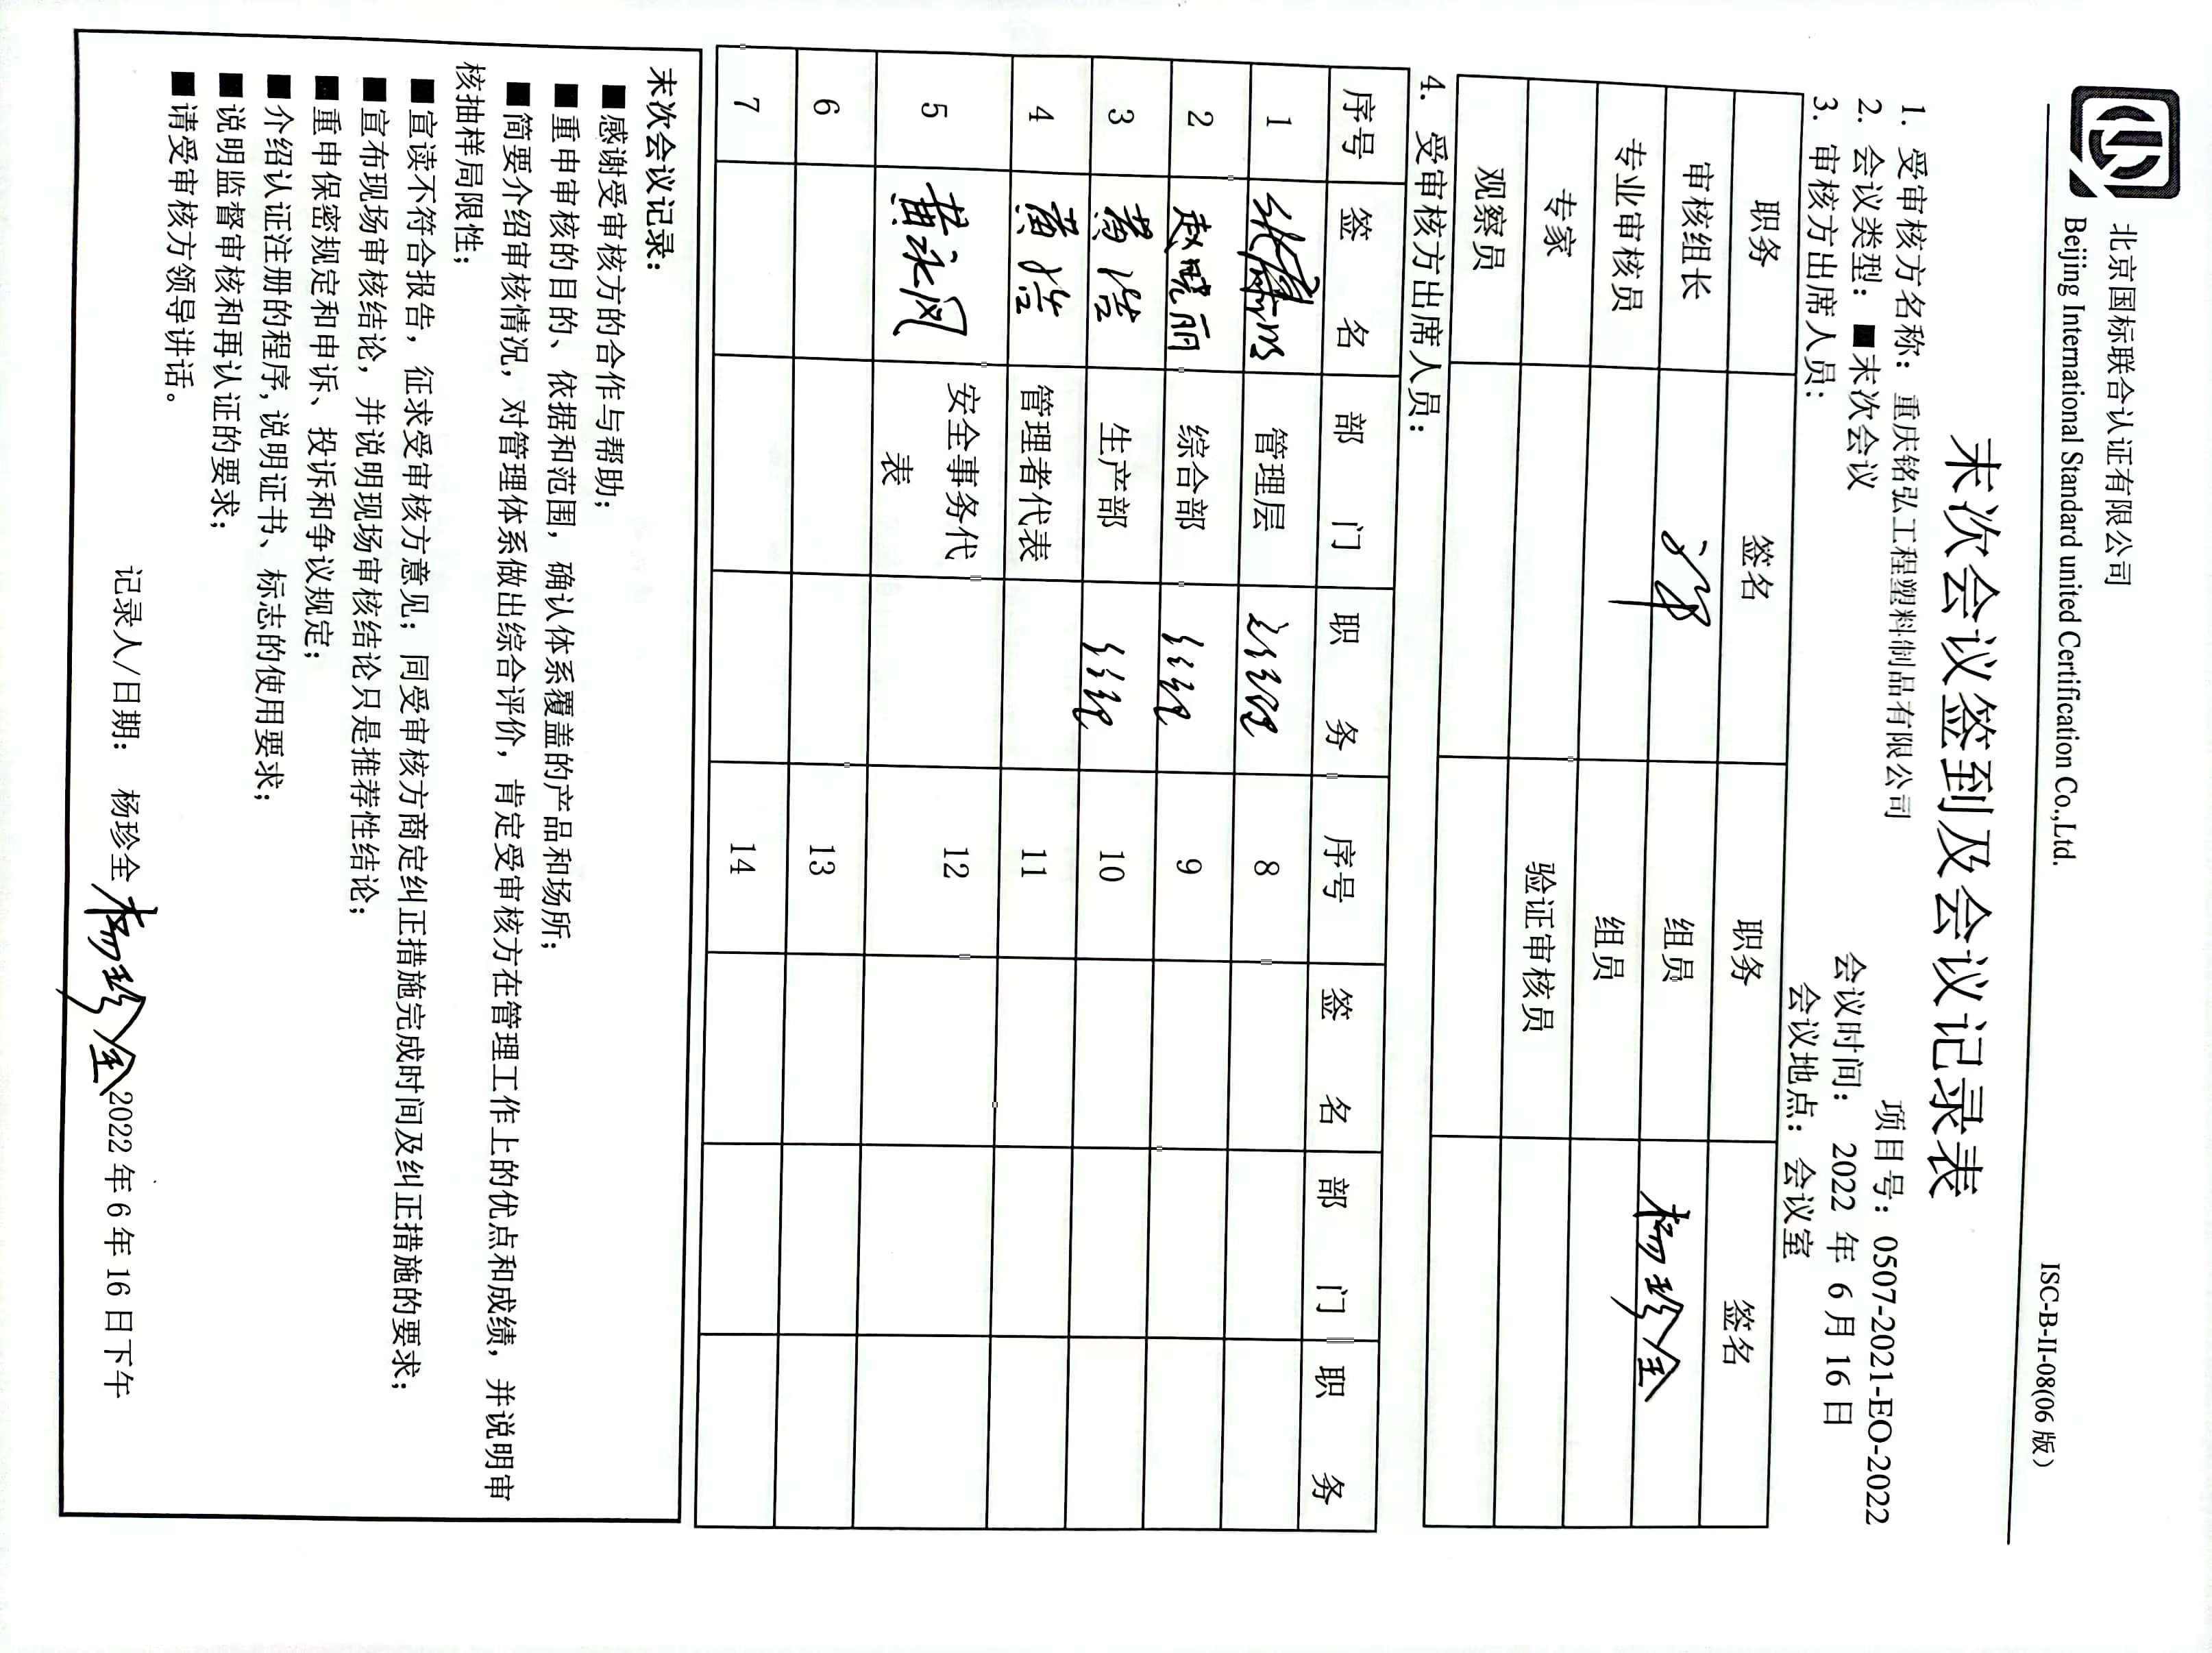 北京国标联合认证有限公司
Beijing International Standard united Certification Co.,Ltd.
ISC-B-II-08(06 版)
末次会议签到及会议记录表
项目号：0507-2021-EO-2022
1. 受审核方名称：重庆铭弘工程塑料制品有限公司
2. 会议类型：■末次会议
会议时间： 2022 年 6 月 16 日
3. 审核方出席人员：
会议地点： 会议室
职务 签名 职务 签名
审核组长 组员 杨珍全
专业审核员 组员
专家 验证审核员
观察员
4. 受审核方出席人员：
序号 签 名 部 门 职 务 序号 签 名 部 门 职 务
1 管理层 8
2 赵晓丽 综合部 经理 9
3 黄浩 生产部 经理 10
4 黄浩 管理者代表 11
5 黄永凤 安全事务代 12
表
6 13
7 14
末次会议记录：
■感谢受审核方的合作与帮助；
■重申审核的目的、依据和范围，确认体系覆盖的产品和场所；
■简要介绍审核情况，对管理体系做出综合评价，肯定受审核方在管理工作上的优点和成绩，并说明审
核抽样局限性；
■宣读不符合报告，征求受审核方意见；同受审核方商定纠正措施完成时间及纠正措施的要求；
■宣布现场审核结论，并说明现场审核结论只是推荐性结论；
■重申保密规定和申诉、投诉和争议规定；
■介绍认证注册的程序,说明证书、标志的使用要求；
■说明监督审核和再认证的要求；
■请受审核方领导讲话。
记录人/日期： 杨珍全 杨珍全 2022 年 6 年 16 日下午